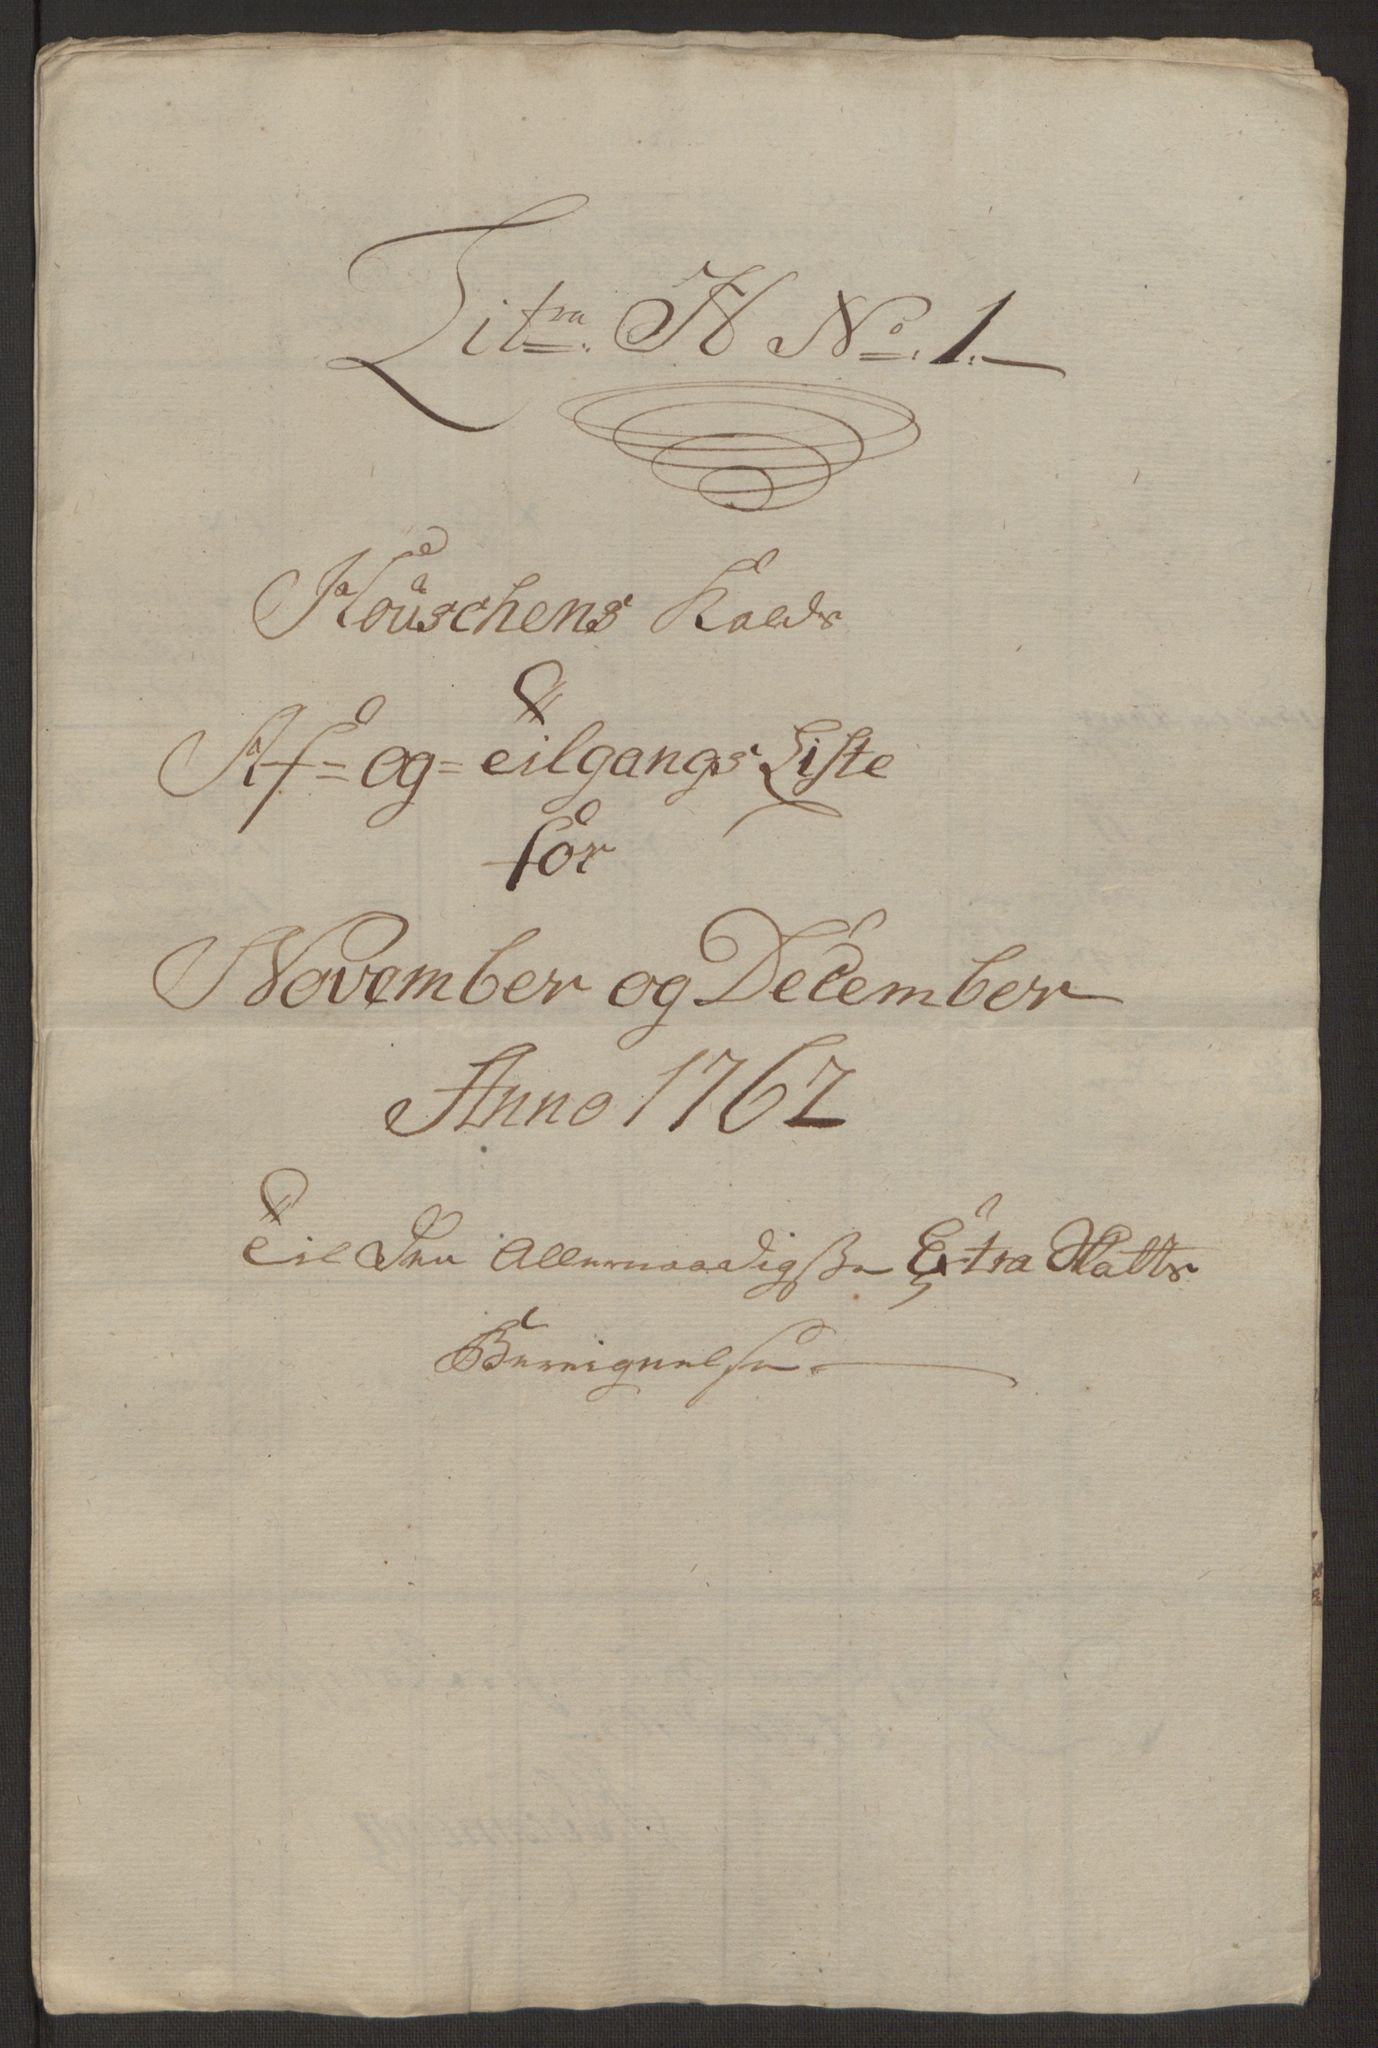 Litra. H No. 1.
Houschens Kalds
Af= og= Tilgangs Liste
for
November og December
Anno 1762
Til Den Allernaadigste Extra Skatts
Bereignelse.